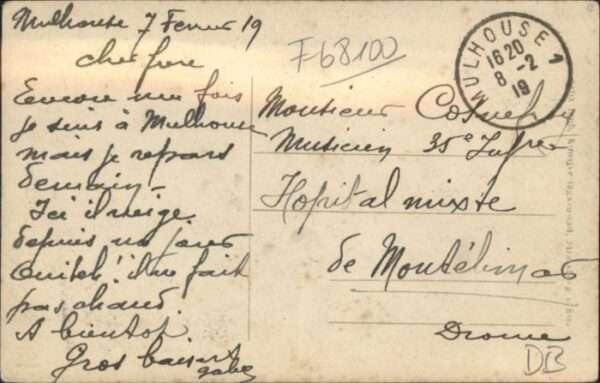 Mulhouse 7 Fevrier 19
cher frere
Encore une fois
je suis à Mulhouse
mais je repars
demain -
Ici il neige
depuis un jour
il ne fait
pas chaud.
A bientot.
Gros baisers
F68100
MULHOUSE
16 20
8 - 2
19
Monsieur
Musicien 35e Infrie
Hopital mixte
de Montélimar
Drome
DB